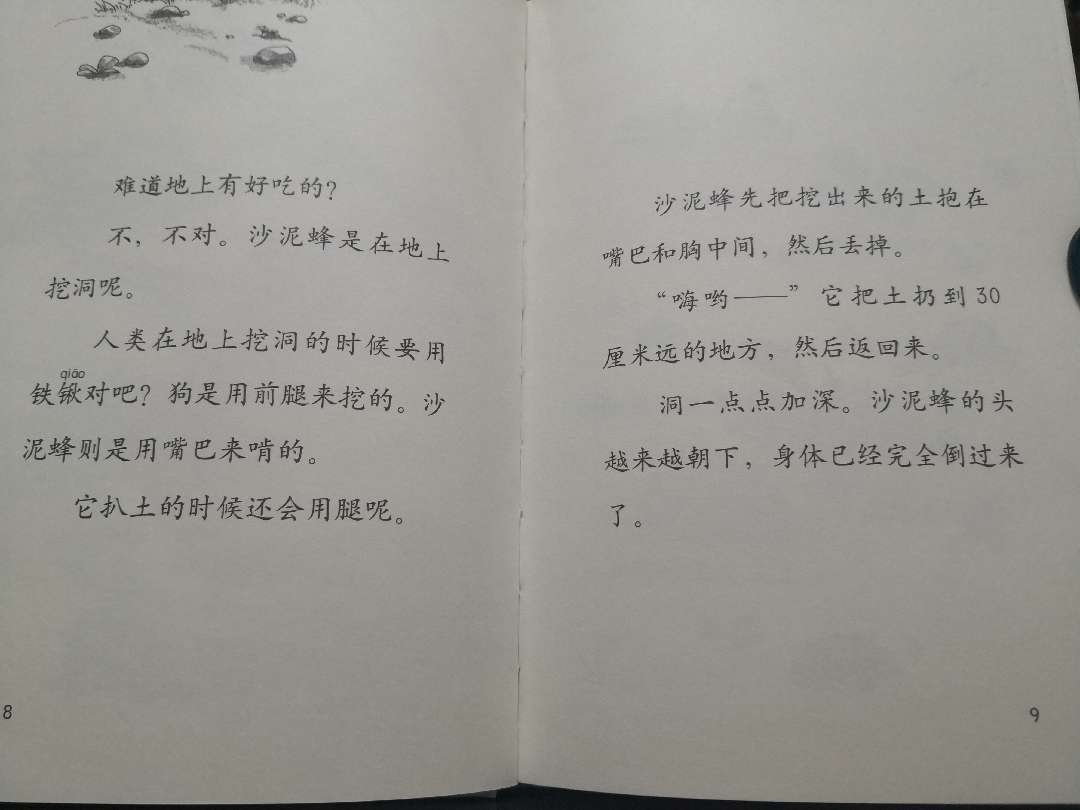 难道地上有好吃的？
不，不对。沙泥蜂是在地上
挖洞呢。
人类在地上挖洞的时候要用
qiāo
铁锹对吧？狗是用前腿来挖的。沙
泥蜂则是用嘴巴来啃的。
它扒土的时候还会用腿呢。
8
沙泥蜂先把挖出来的土抱在
嘴巴和胸中间，然后丢掉。
“嗨哟——”它把土扔到30
厘米远的地方，然后返回来。
洞一点点加深。沙泥蜂的头
越来越朝下，身体已经完全倒过来
了。
9